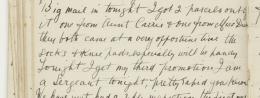 Big mail in tonight I got 2 parcels out
it one from Aunt Carrie & one from
they both came at a very opportune time the
socks & knee pads especially will be handy
Tonight I get my third promotion I am
a Sergeant tonight, pretty rapid you know
We have just had a